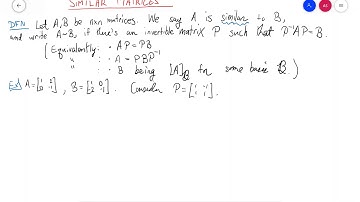 SIMILAR MATRICES
DFN. Let A,B be n×n matrices. We say A is similar to B,
and write A~B, if there's an invertible matrix P such that P⁻¹AP=B.
(Equivalently: · AP=PB
" : · A = PBP⁻¹
" : · B being [A] for some basis .)
Ex) A= , B= . Consider P= .